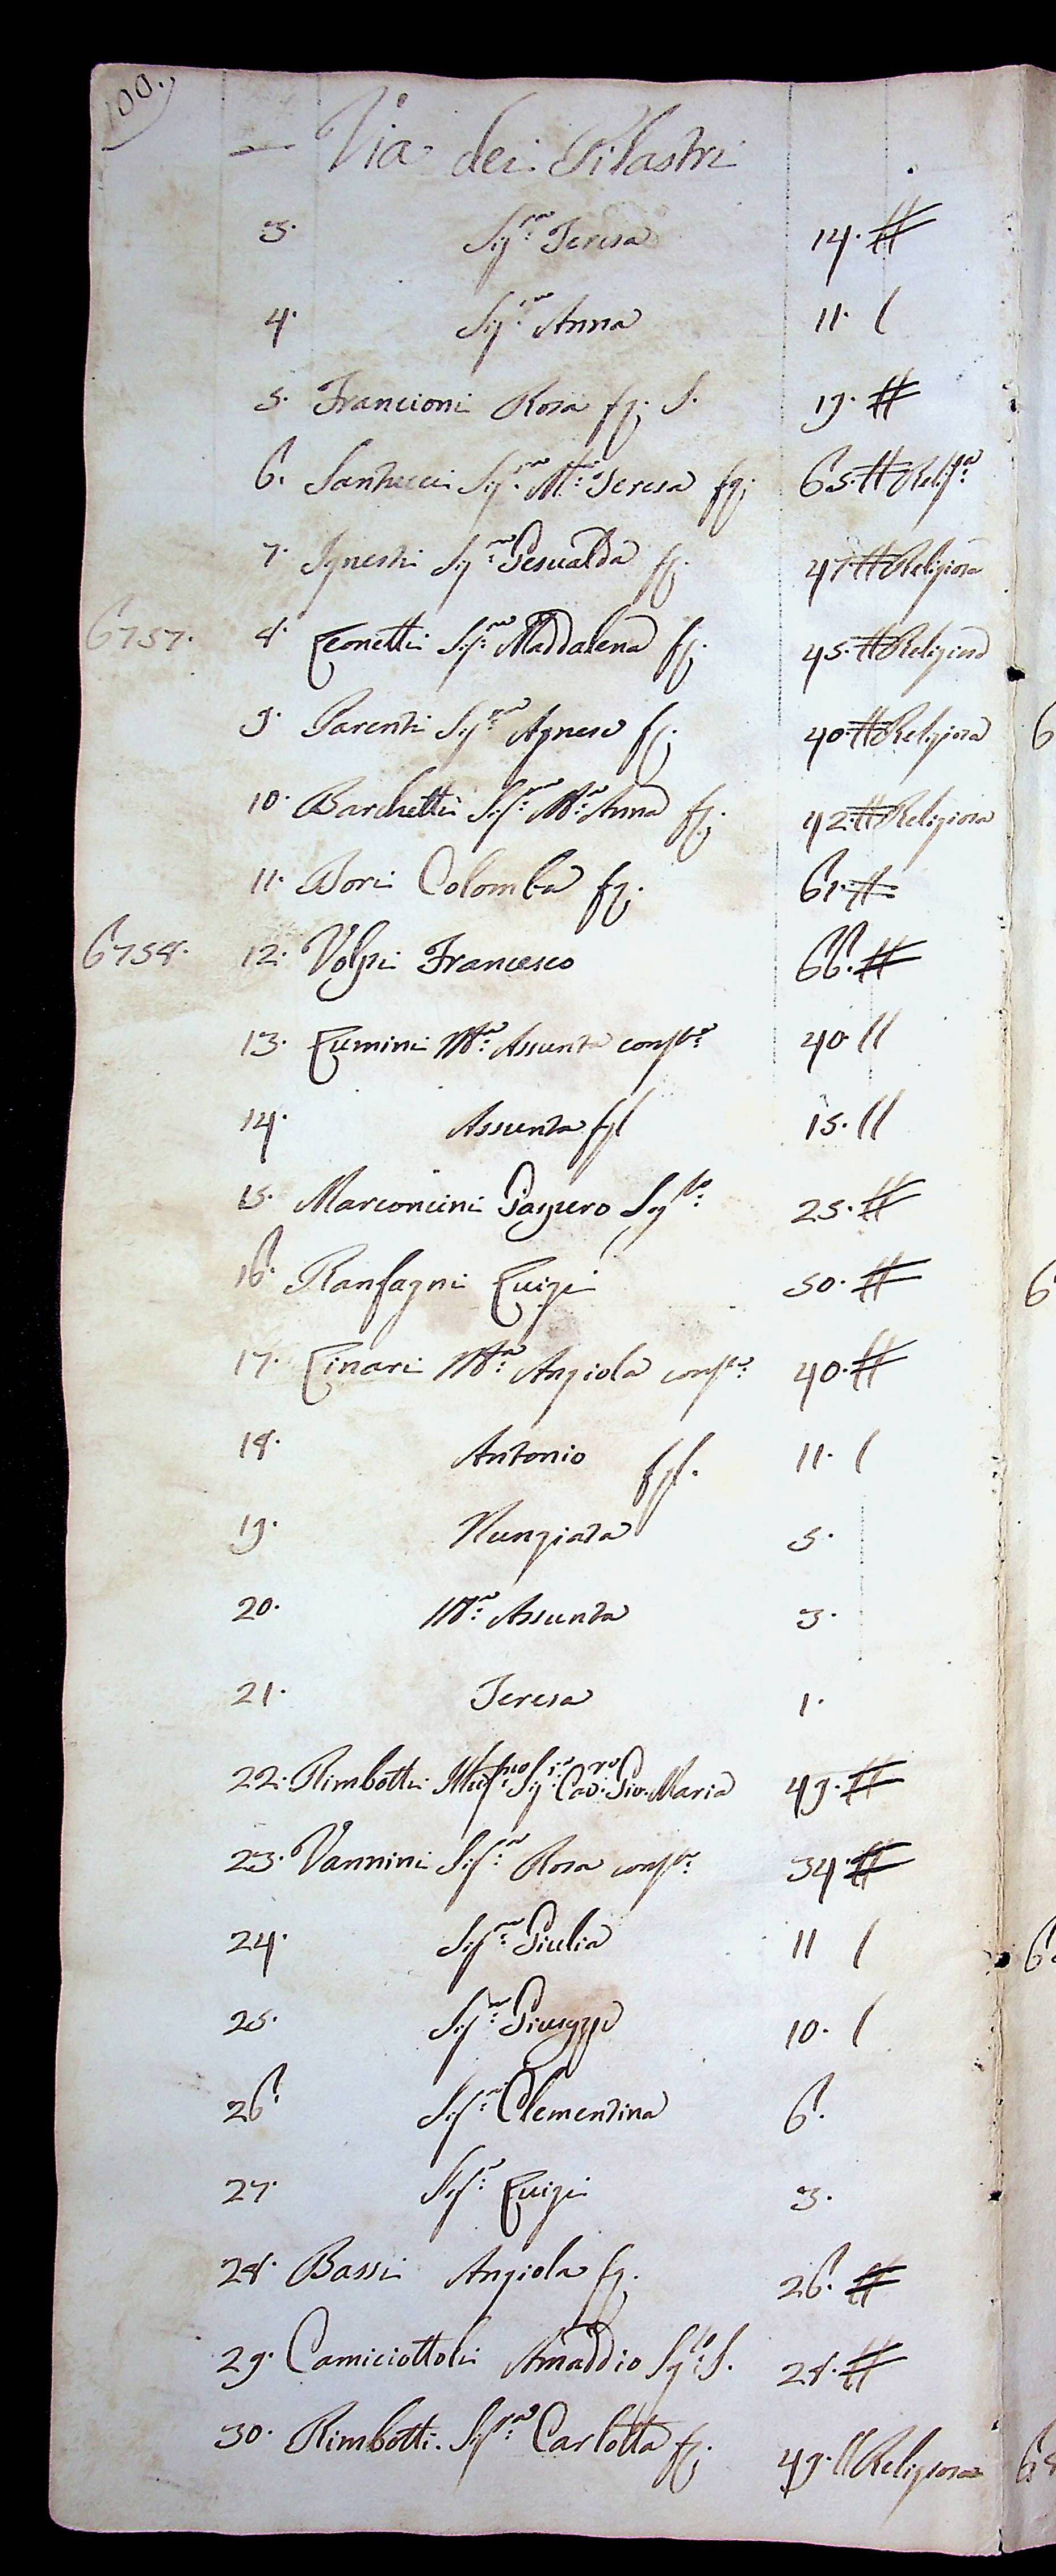 100.
Via dei Pilastri
3. Sig.ra Teresa 14. #
4. Sig.ra Anna 11. (
5. Francioni Rosa fg. S. 19. #
6. Santucci Sig.ra M.a Teresa fg. 65. # Relig.a
7. Ignesti Sig.ra Gesualda fg. 47 # Religiosa
6757. 8. Leonetti Sig.ra Maddalena fg. 45. # Religiosa
9. Parenti Sig.ra Agnese fg. 40 # Religiosa
10. Barchetti Sig.ra M.a Anna fg. 42 # Religiosa
11. Bori Colomba fg. 61. #
6758. 12. Volpi Francesco 66. #
13. Lumini M.a Assunta 40 //
14. Assunta fgl 15. //
15. Marconcini Gaspero 25. #
16. Ranfagni Luigi 50. #
17. Linari M.a Angiola 40. #
18. Antonio fgl. 11. (
19. Nunziata 5.
20. M.a Assunta 3.
21. Teresa 1.
22. Rimbotti Ill.mo Sig.r Cav.re Gio. Maria 49. #
23. Vannini Sig.ra Rosa 34. #
24. Sig.ra Giulia 11 (
25. Sig.r Giuseppe 10. (
26. Sig.ra Clementina 6.
27. Sig.r Luigi 3.
28. Bassi Angiola fg. 26. #
29. Camiciottoli Amaddio S. 28. #
30. Rimbotti. Sig.ra Carlotta fg. 49. // Religiosa